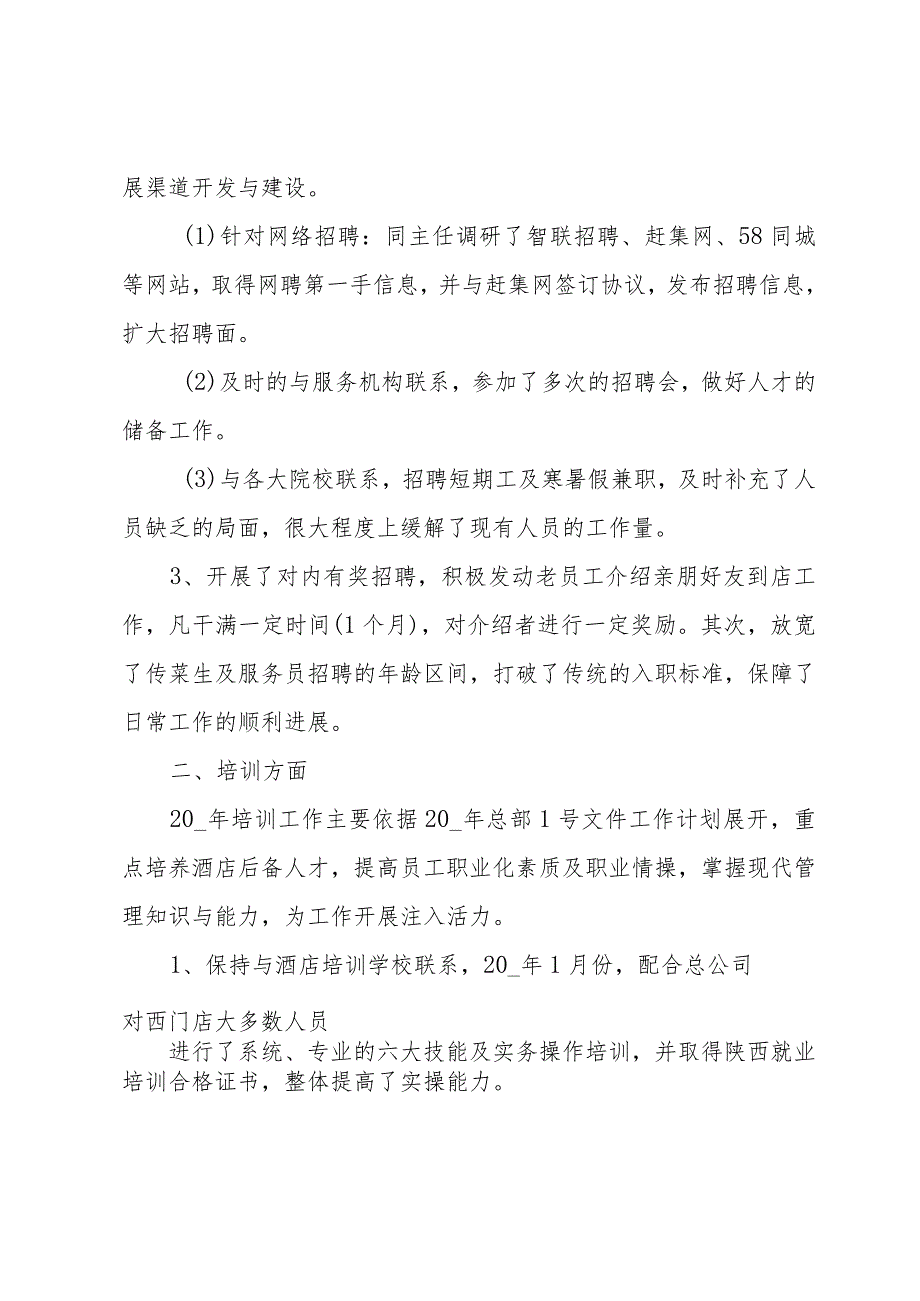 展渠道开发与建设。
(1)针对网络招聘：同主任调研了智联招聘、赶集网、58 同城
等网站，取得网聘第一手信息，并与赶集网签订协议，发布招聘信息，
扩大招聘面。
(2)及时的与服务机构联系，参加了多次的招聘会，做好人才的
储备工作。
(3)与各大院校联系，招聘短期工及寒暑假兼职，及时补充了人
员缺乏的局面，很大程度上缓解了现有人员的工作量。
3、开展了对内有奖招聘，积极发动老员工介绍亲朋好友到店工
作，凡干满一定时间(1 个月)，对介绍者进行一定奖励。其次，放宽
了传菜生及服务员招聘的年龄区间，打破了传统的入职标准，保障了
日常工作的顺利进展。
二、培训方面
20_年培训工作主要依据 20_年总部 1 号文件工作计划展开，重
点培养酒店后备人才，提高员工职业化素质及职业情操，掌握现代管
理知识与能力，为工作开展注入活力。
1、保持与酒店培训学校联系，20_年 1 月份，配合总公司
对西门店大多数人员
进行了系统、专业的六大技能及实务操作培训，并取得陕西就业
培训合格证书，整体提高了实操能力。